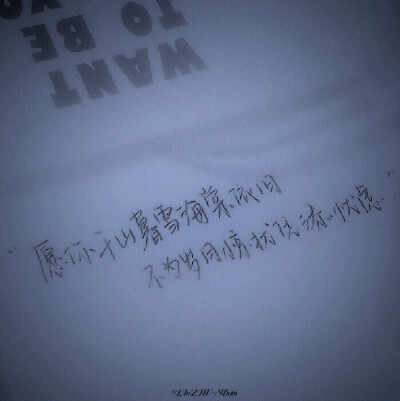 WANT
TO BE YO
"愿你千山暮雪海棠依旧
不为岁月惊扰 添忧虑"